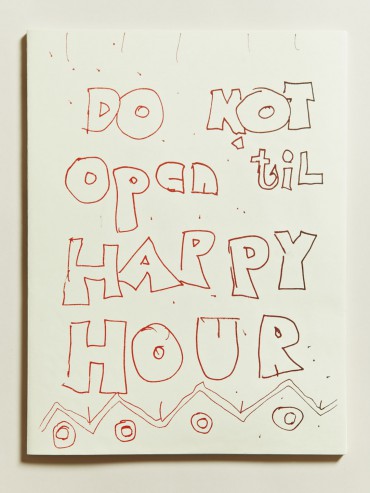 DO NOT
open til
HAPPY
HOUR